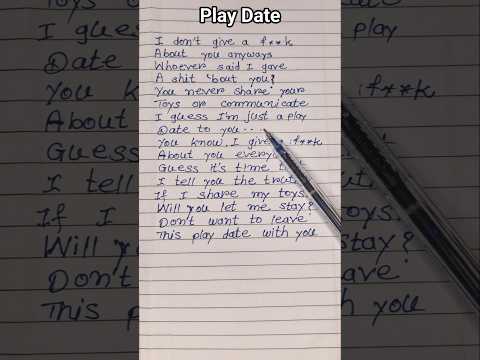 Play Date
I don't give a f**k
About you anyways
Whoever said I gave
A shit 'bout you?
You never share your
Toys or communicate
I guess I'm just a play
Date to you...
You know I give f**k
About you
Guess it's time
I tell you the
If I share my toys
Will you let me stay?
Don't want to leave
This play date with you